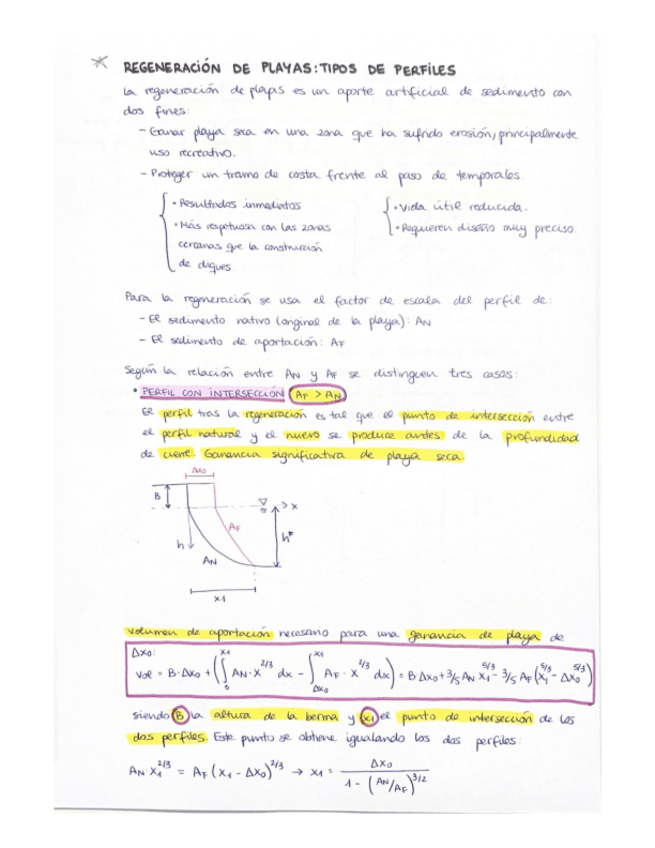 REGENERACIÓN DE PLAYAS: TIPOS DE PERFILES
La regeneración de playas es un aporte artificial de sedimento con
dos fines:
- Ganar playa seca en una zona que ha sufrido erosión, principalmente
uso recreativo.
- Proteger un tramo de costa frente al paso de temporales.
• Resultados inmediatos
• Más respetuosa con las zonas
cercanas que la construcción
de diques.
• Vida útil reducida.
• Requieren diseño muy preciso.
Para la regeneración se usa el factor de escala del perfil de:
- El sedimento nativo (original de la playa): AN
- El sedimento de aportación: AF
Según la relación entre AN y AF se distinguen tres casos:
• PERFIL CON INTERSECCIÓN (AF > AN)
El perfil tras la regeneración es tal que el punto de intersección entre
el perfil natural y el nuevo se produce antes de la profundidad
de cierre. Ganancia significativa de playa seca.
Δx0
B
> x
AF
h
h*
AN
x1
Volumen de aportación necesario para una ganancia de playa de
Δx0:
Vol = B·Δx0 + (∫₀^x1 AN·x^2/3 dx - ∫_Δx0^x1 AF·x^2/3 dx) = B·Δx0 + 3/5 AN x1^5/3 - 3/5 AF (x1^5/3 - Δx0^5/3)
siendo B la altura de la berma y x1 el punto de intersección de los
dos perfiles. Este punto se obtiene igualando los dos perfiles:
AN·x1^2/3 = AF (x1 - Δx0)^2/3 → x1 = Δx0 / (1 - (AN/AF)^3/2)